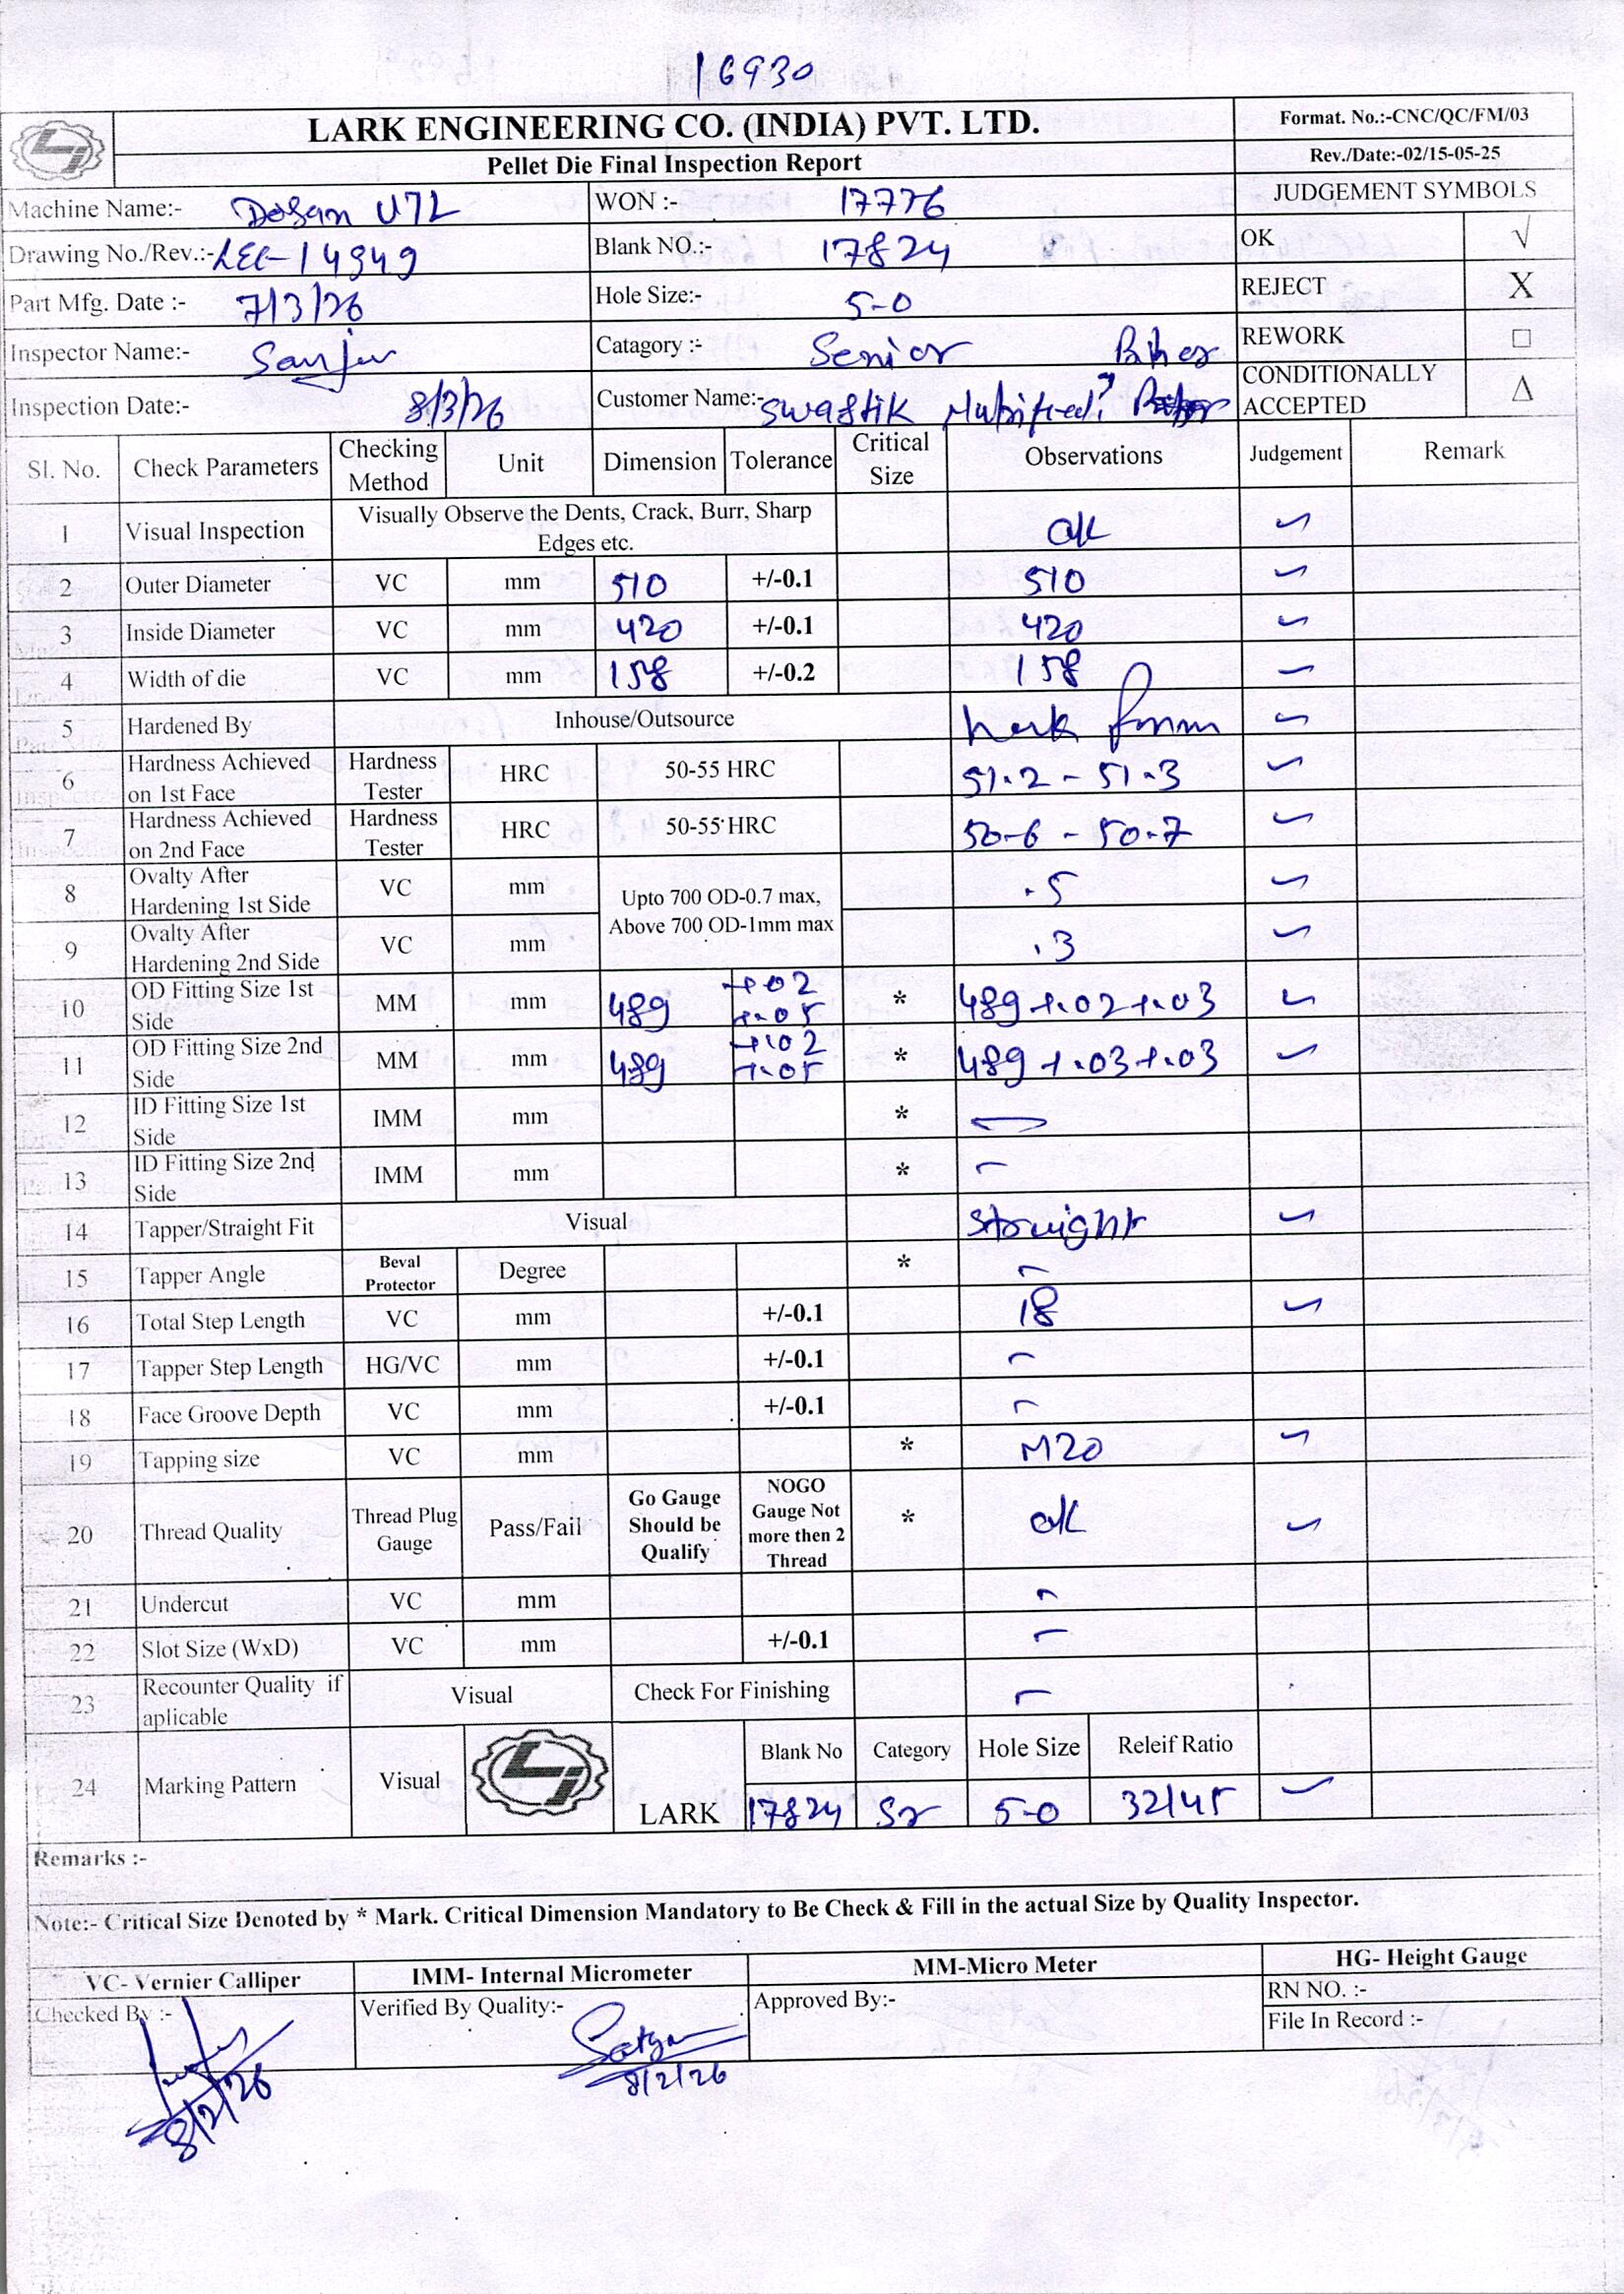 16930
LARK ENGINEERING CO. (INDIA) PVT. LTD.
Format. No.:-CNC/QC/FM/03
Pellet Die Final Inspection Report
Rev./Date:-02/15-05-25
Machine Name:- Dosan U72
WON :- 17776
JUDGEMENT SYMBOLS
Drawing No./Rev.:- LEC-14949
Blank NO.:- 17824
OK √
Part Mfg. Date :- 7/3/26
Hole Size:- 5-0
REJECT X
Inspector Name:- Sanju
Catagory :- Senior
REWORK □
Inspection Date:- 8/3/26
Customer Name:- Swastik
CONDITIONALLY ACCEPTED Δ
Sl. No. Check Parameters Checking Method Unit Dimension Tolerance Critical Size Observations Judgement Remark
1 Visual Inspection Visually Observe the Dents, Crack, Burr, Sharp Edges etc. ok ✓
2 Outer Diameter VC mm 510 +/-0.1 510 ✓
3 Inside Diameter VC mm 420 +/-0.1 420 ✓
4 Width of die VC mm 158 +/-0.2 158 ✓
5 Hardened By Inhouse/Outsource ✓
6 Hardness Achieved on 1st Face Hardness Tester HRC 50-55 HRC 51.2 - 51.3 ✓
7 Hardness Achieved on 2nd Face Hardness Tester HRC 50-55 HRC 50-6 - 50-7 ✓
8 Ovalty After Hardening 1st Side VC mm Upto 700 OD-0.7 max, Above 700 OD-1mm max .5 ✓
9 Ovalty After Hardening 2nd Side VC mm .3 ✓
10 OD Fitting Size 1st Side MM mm 489 +.02 +.05 * 489 +.02 +.03 ✓
11 OD Fitting Size 2nd Side MM mm 489 +.02 +.05 * 489 +.03 +.03 ✓
12 ID Fitting Size 1st Side IMM mm * -
13 ID Fitting Size 2nd Side IMM mm * -
14 Tapper/Straight Fit Visual Straight ✓
15 Tapper Angle Beval Protector Degree * -
16 Total Step Length VC mm +/-0.1 18 ✓
17 Tapper Step Length HG/VC mm +/-0.1 -
18 Face Groove Depth VC mm +/-0.1 -
19 Tapping size VC mm * M20 ✓
20 Thread Quality Thread Plug Gauge Pass/Fail Go Gauge Should be Qualify NOGO Gauge Not more then 2 Thread * ok ✓
21 Undercut VC mm -
22 Slot Size (WxD) VC mm +/-0.1 -
23 Recounter Quality if aplicable Visual Check For Finishing -
24 Marking Pattern Visual LARK Blank No Category Hole Size Releif Ratio
17824 Sr 5-0 32/45 ✓
Remarks :-
Note:- Critical Size Denoted by * Mark. Critical Dimension Mandatory to Be Check & Fill in the actual Size by Quality Inspector.
VC- Vernier Calliper IMM- Internal Micrometer MM-Micro Meter HG- Height Gauge
Checked By :- Verified By Quality:- Approved By:- RN NO. :-
File In Record :-
Satyam
8/2/26 8/2/26